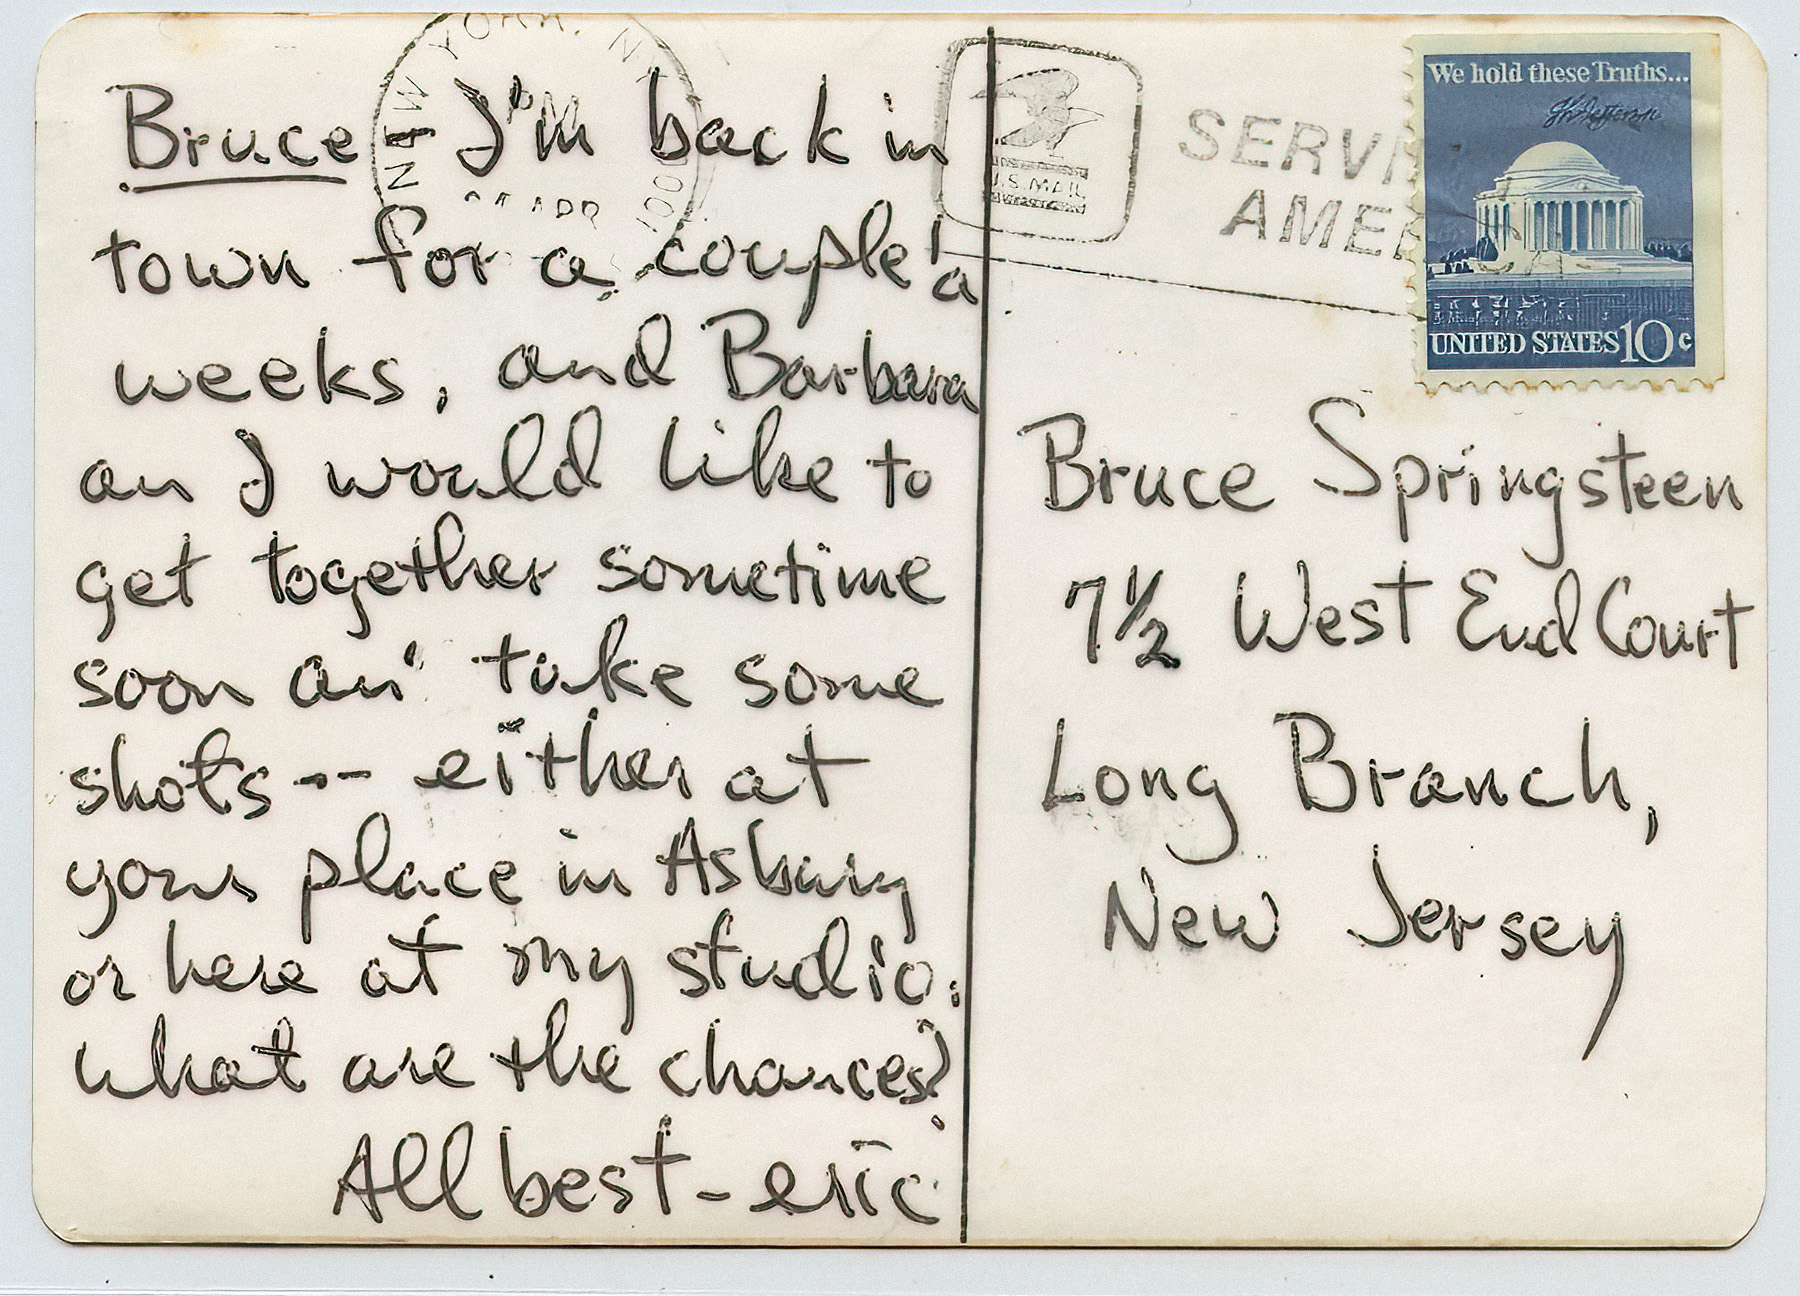 Bruce I'm back in
town for a couple'a
weeks, and Barbara
an I would like to
get together sometime
soon an' take some
shots -- either at
your place in Asbury
or here at my studio.
what are the chances?
All best - eric
NEW YORK, N.Y.
PM
APR
100
U.S. MAIL
SERVI
AMER
We hold these Truths...
Th Jefferson
UNITED STATES 10c
Bruce Springsteen
7 1/2 West End Court
Long Branch,
New Jersey